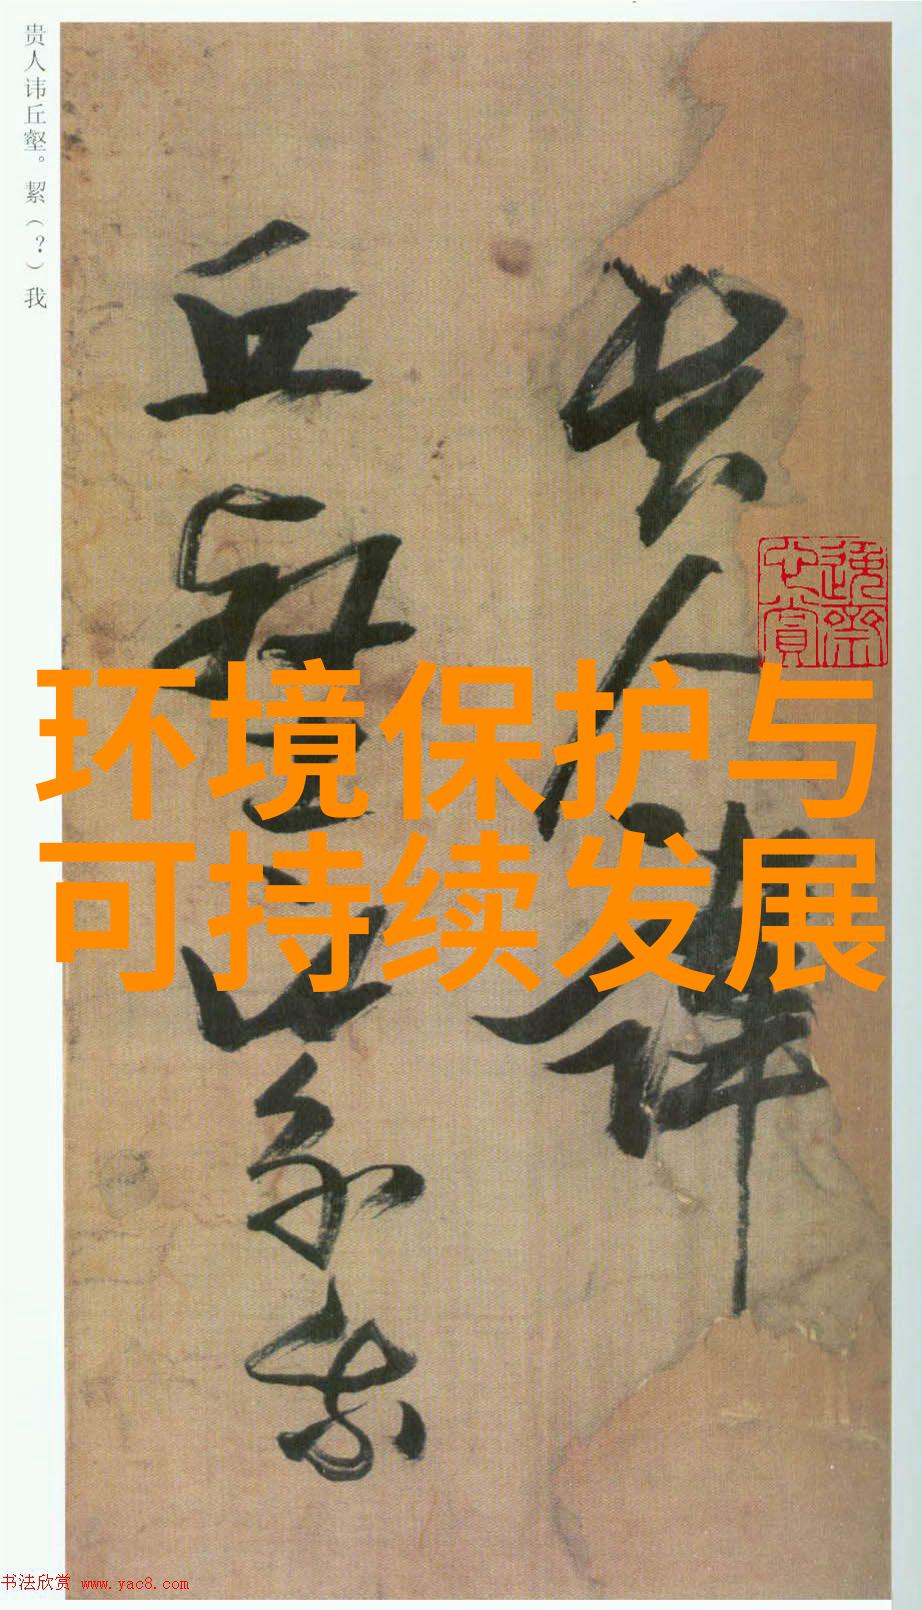 贵人讳丘壑。絜（？）我
贵人讳
丘壑絜我
环境保护与
可持续发展
书法欣赏 www.yac8.com